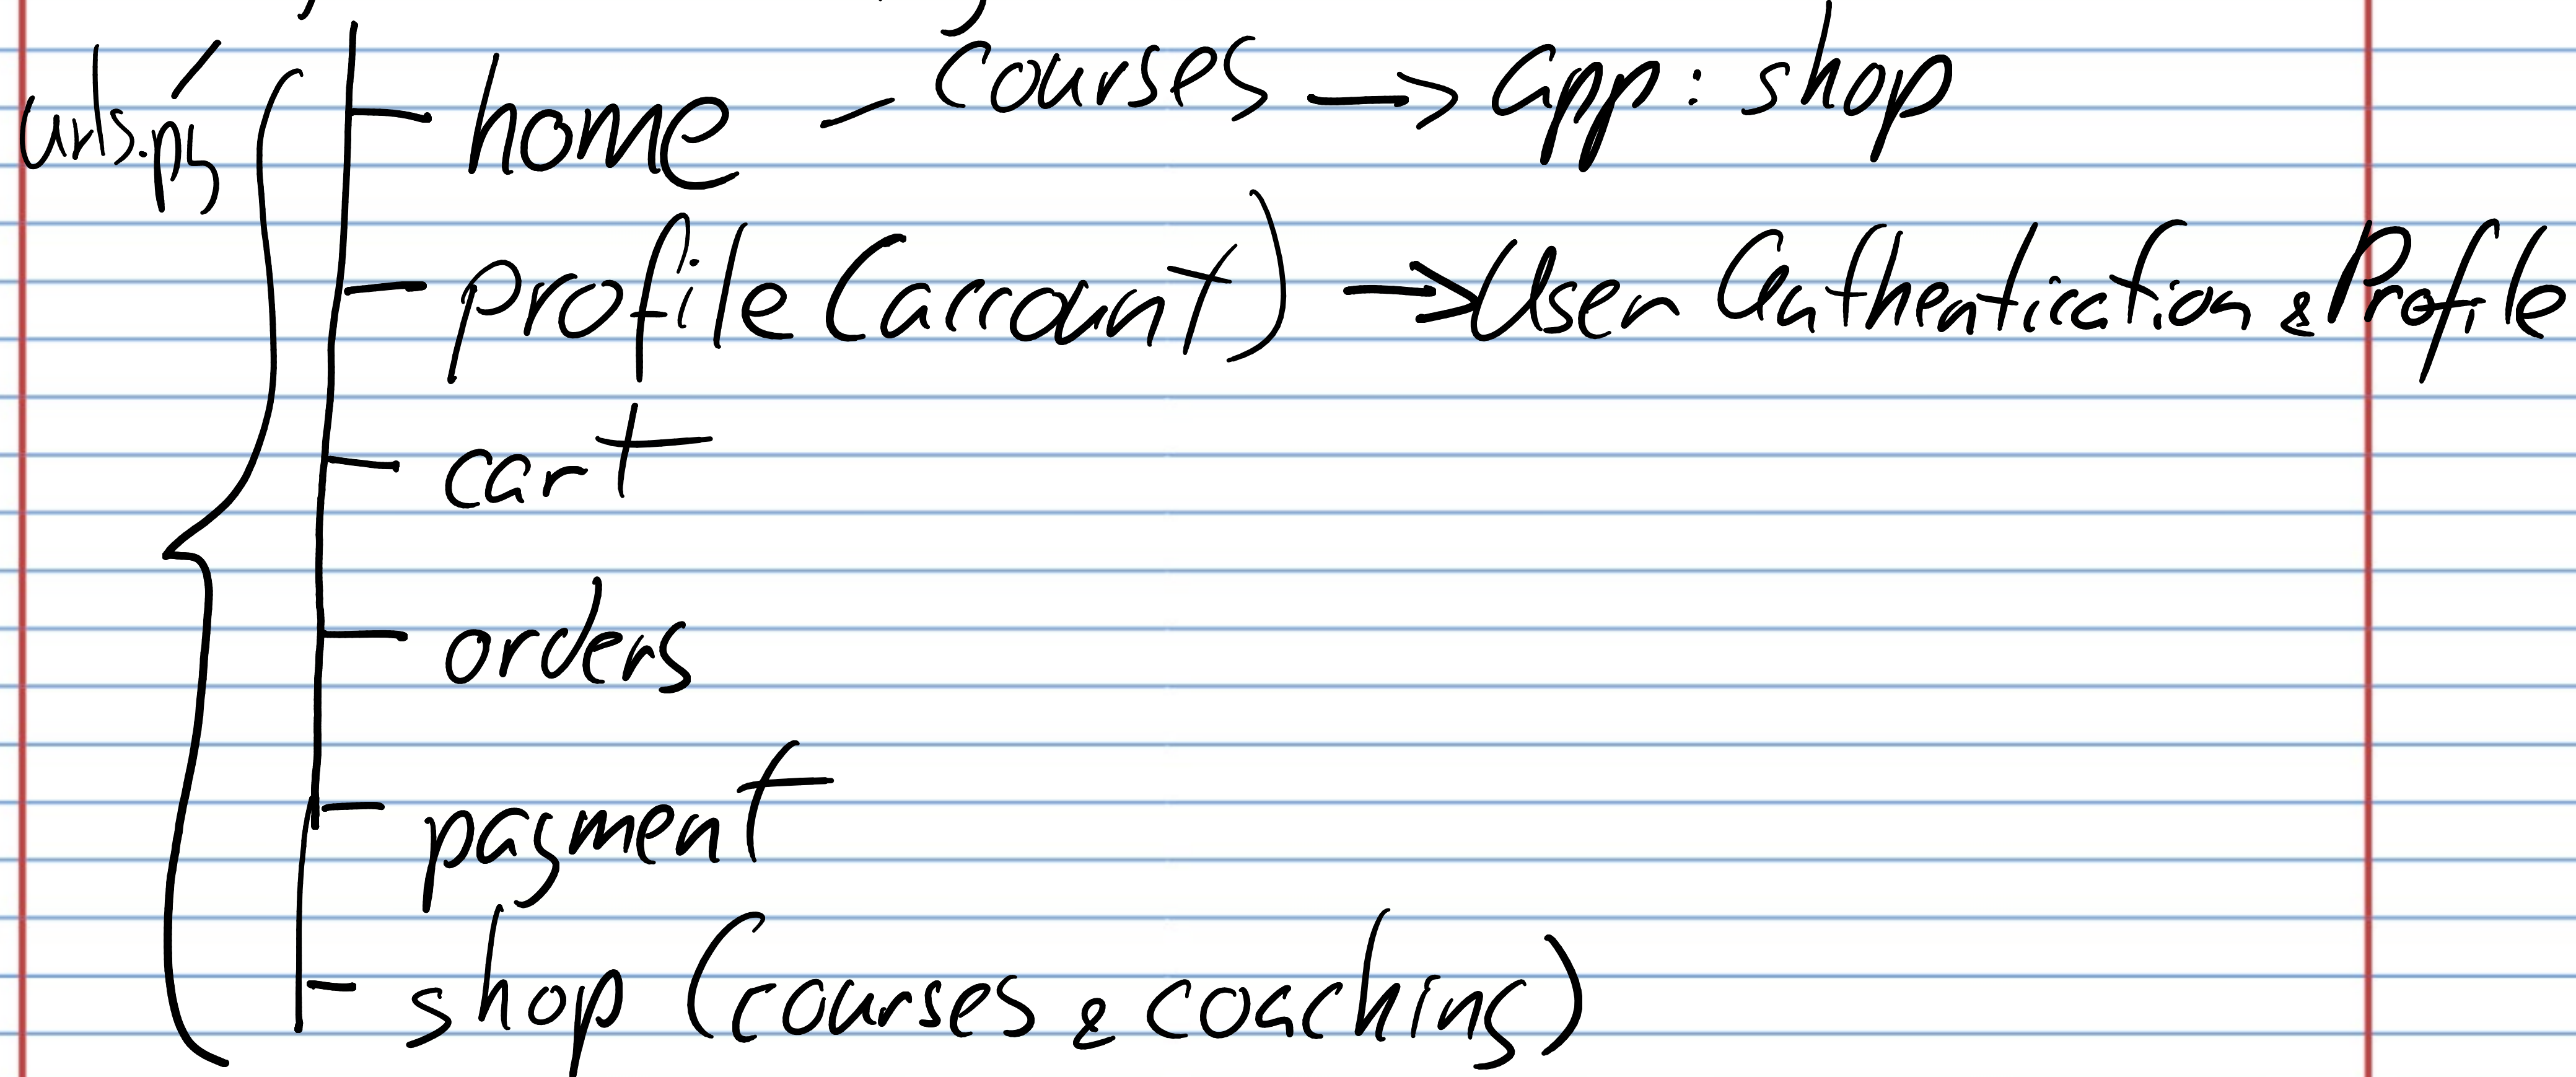 urls.py
home - Courses → app: shop
profile (account) → User Authentication & Profile
cart
orders
payment
shop (courses & coaching)